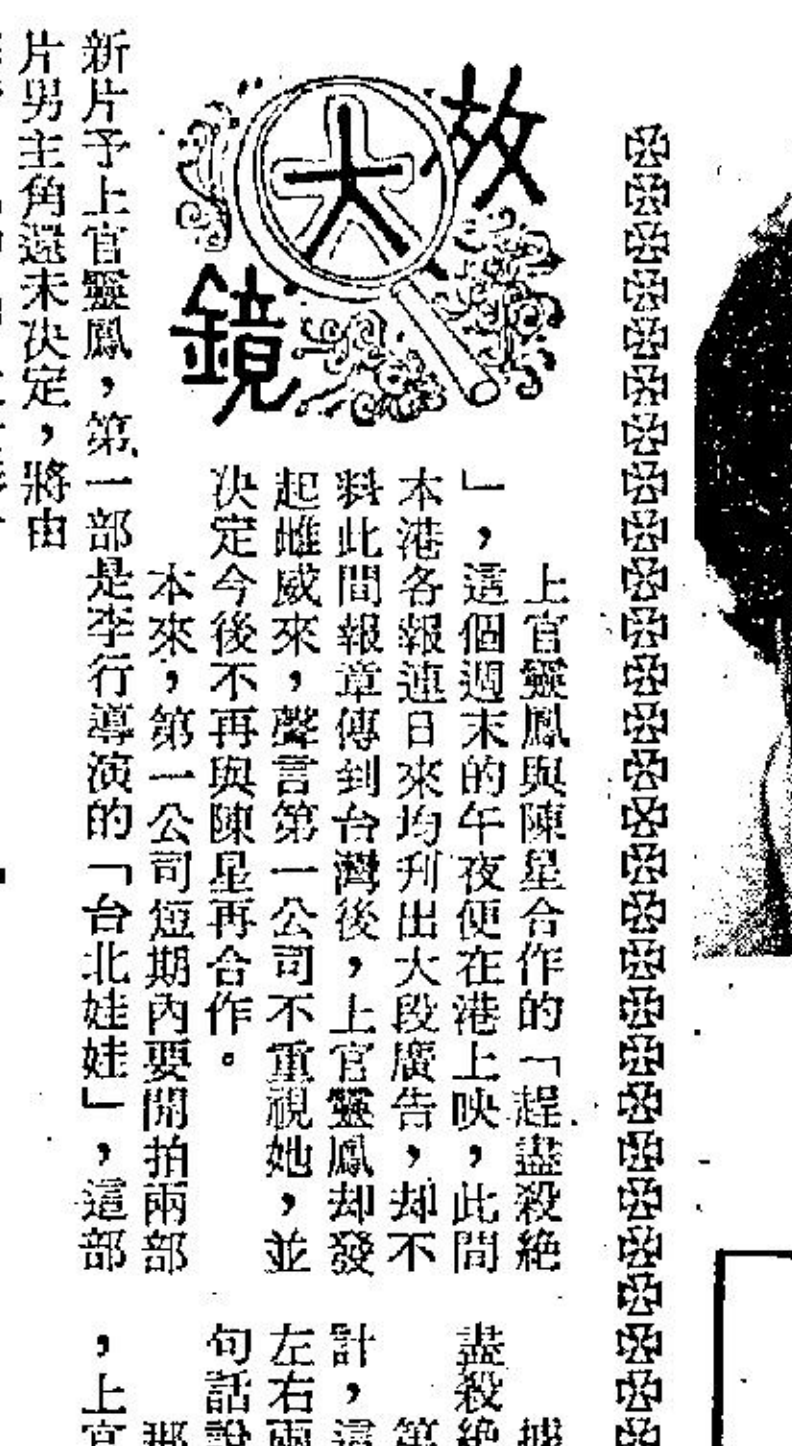 放大鏡
上官靈鳳與陳星合作的「趕盡殺絕
」，這個週末的午夜便在港上映，此間
本港各報連日來均刋出大段廣告，却不
料此間報章傳到台灣後，上官靈鳳却發
起雌威來，聲言第一公司不重視她，並
決定今後不再與陳星再合作。
本來，第一公司短期內要開拍兩部
新片予上官靈鳳，第一部是李行導演的「台北娃娃」，這部
片男主角還未決定，將由
盡殺絕
計，這
左右兩
句話說
，上官